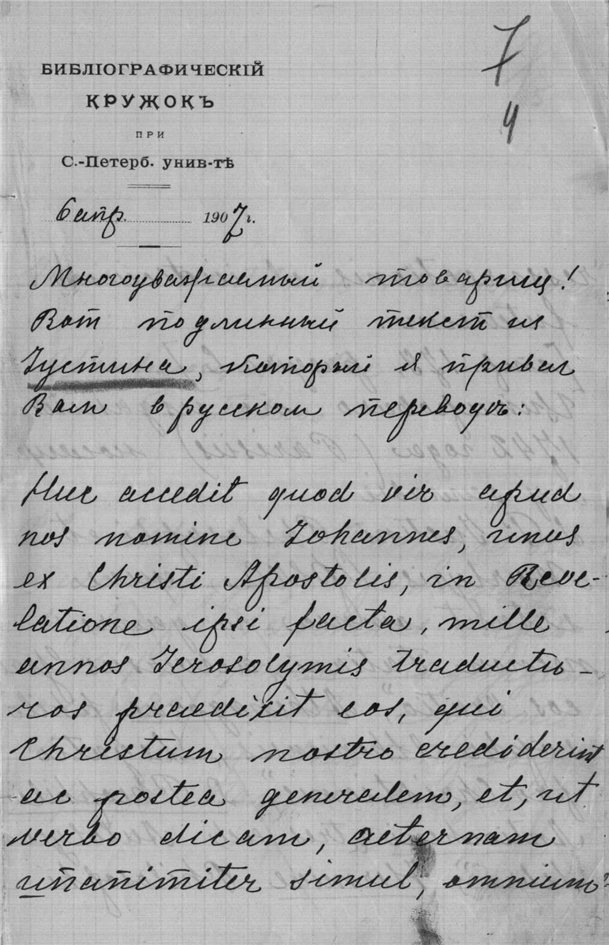 7
4
БИБЛІОГРАФИЧЕСКІЙ
КРУЖОКЪ
ПРИ
С.-Петерб. унив-тѣ
6 апр. 1907 г.
Многоуважаемый товарищ!
Вот подлинный текст из
Іустина, который я привел
Вам в русском переводѣ:
Huc accedit quod vir apud
nos nomine Iohannes, unus
ex Christi Apostolis, in Reve-
latione ipsi facta, mille
annos Ierosolymis traductu-
ros praedixit eos, qui
Christum nostro crediderint
ac postea generalem, et, ut
verbo dicam, aeternam
unanimiter simul, omnium